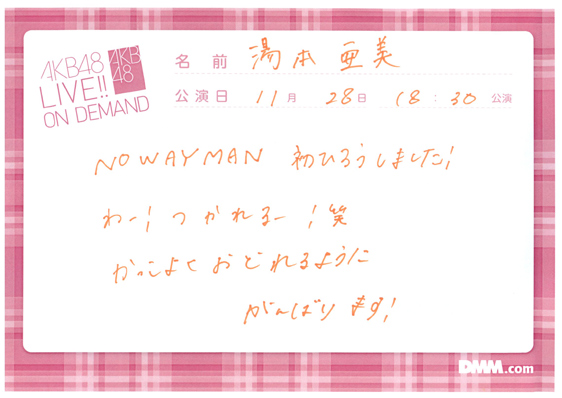 AKB48
LIVE!!
ON DEMAND
AKB
48
名前 湯本亜美
公演日 11月 28日 18:30 公演
NO WAY MAN 初ひろうしました!
わー!つかれるー!笑
かっこよくおどれるように
がんばります!
DMM.com